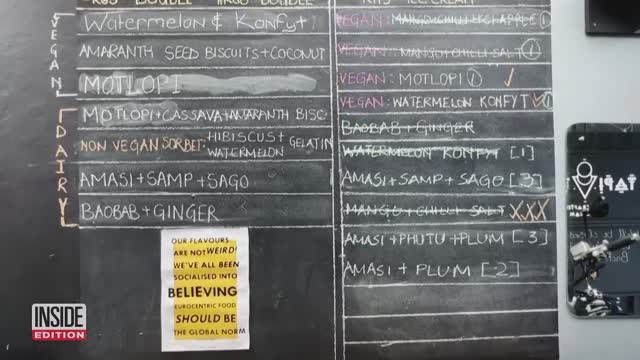 R65 DOUBLE
Watermelon & Konfyt
AMARANTH SEED BISCUITS + COCONUT
MOTLOPI
MOTLOPI + CASSAVA + AMARANTH BISC
NON VEGAN SORBET: HIBISCUS + WATERMELON + GELATIN
AMASI + SAMP + SAGO
BAOBAB + GINGER
VEGAN
DAIRY
ICE CREAM
VEGAN: MANGO + CHILLI + APPLE ①
VEGAN: MANGO + CHILLI SALT ①
VEGAN: MOTLOPI ① ✓
VEGAN: WATERMELON KONFYT ①
BAOBAB + GINGER
WATERMELON KONFYT [1]
AMASI + SAMP + SAGO [3]
MANGO + CHILLI SALT XXX
AMASI + PHUTU + PLUM [3]
AMASI + PLUM [2]
OUR FLAVOURS
ARE NOT WEIRD!
WE'VE ALL BEEN
SOCIALISED INTO
BELIEVING
EUROCENTRIC FOOD
SHOULD BE
THE GLOBAL NORM
TAPI
INSIDE
EDITION